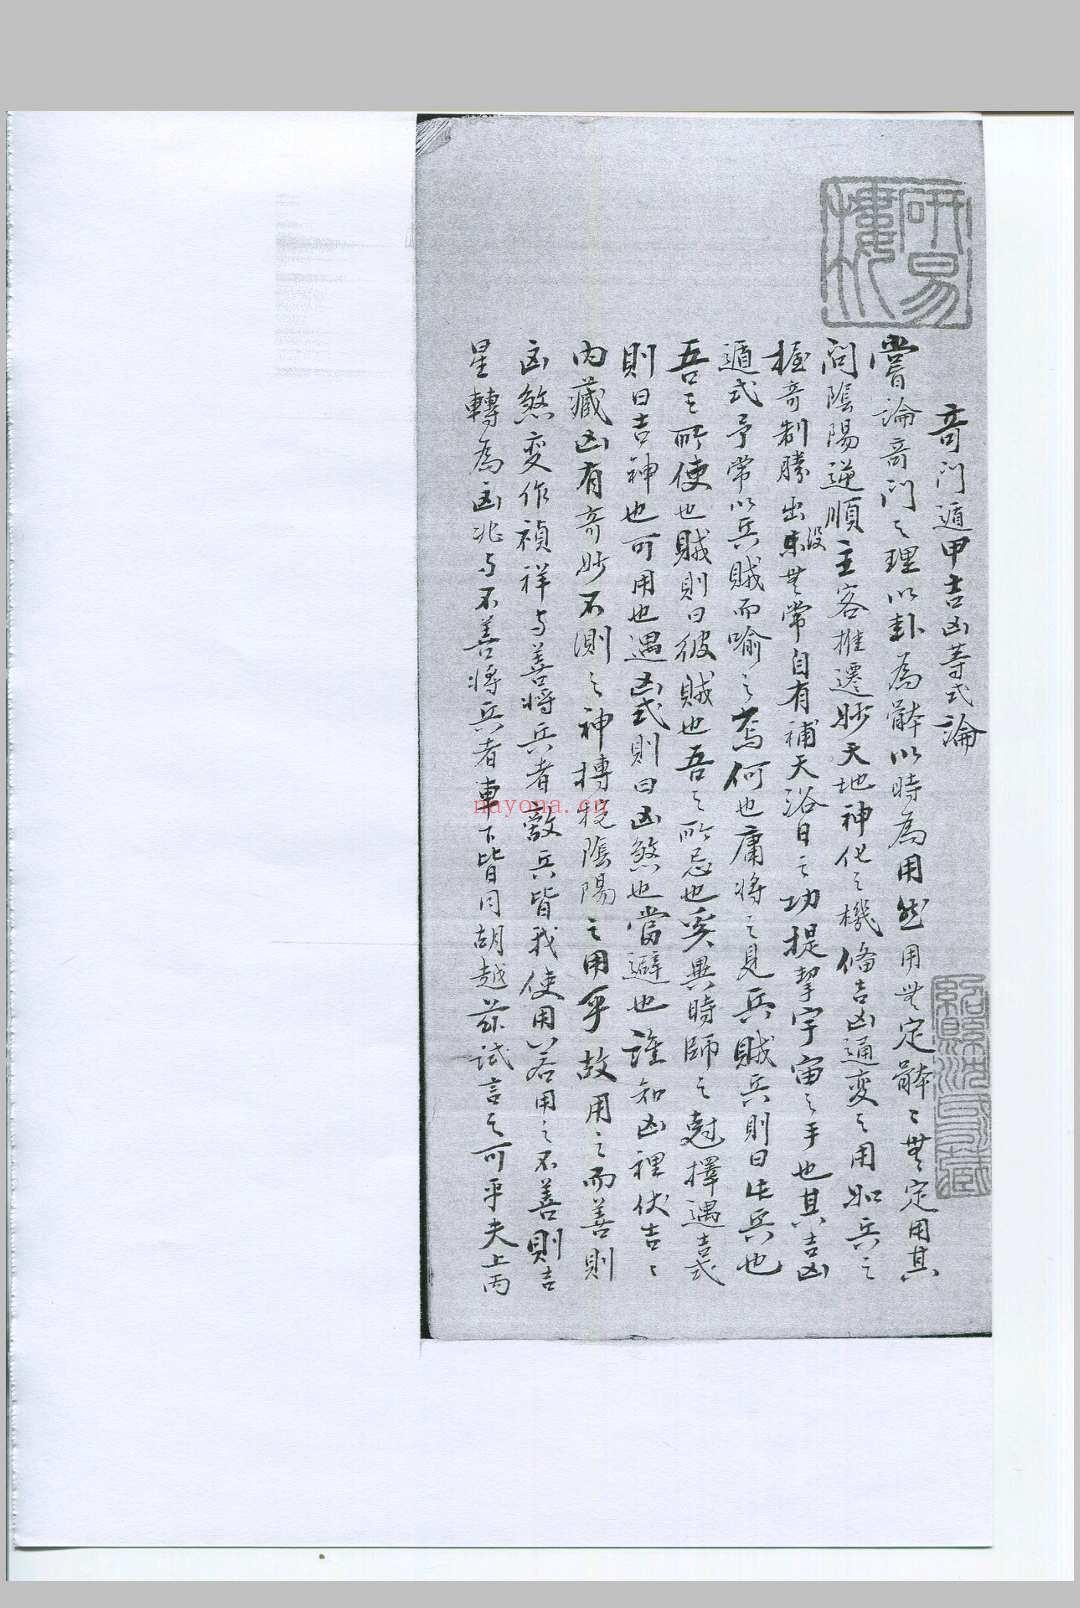 奇門遁甲吉凶等式論
嘗論奇門之理以卦為體以時為用然用無定體〻無定用其
問陰陽逆順主客推遷妙天地神化之機俻吉凶通變之用如兵之
握奇制勝出没無常自有補天浴日之功提挈宇宙之手也其吉凶
遁式予常以兵賊而喻之焉何也庸將之見兵賊兵則曰此兵也
吾之所使也賊則曰彼賊也吾之所忌也奚異時師之尅擇遇吉式
則曰吉神也可用也遇凶式則曰凶煞也當避也誰知凶裡伏吉〻
内藏凶有奇妙不測之神摶捖陰陽之用乎故用之而善則
凶煞變作禎祥与善將兵者敵兵皆我使用若用之不善則吉
星轉為凶兆与不善將兵者車下皆同胡越茲試言之可乎夫上丙
研易樓
nayona.cn